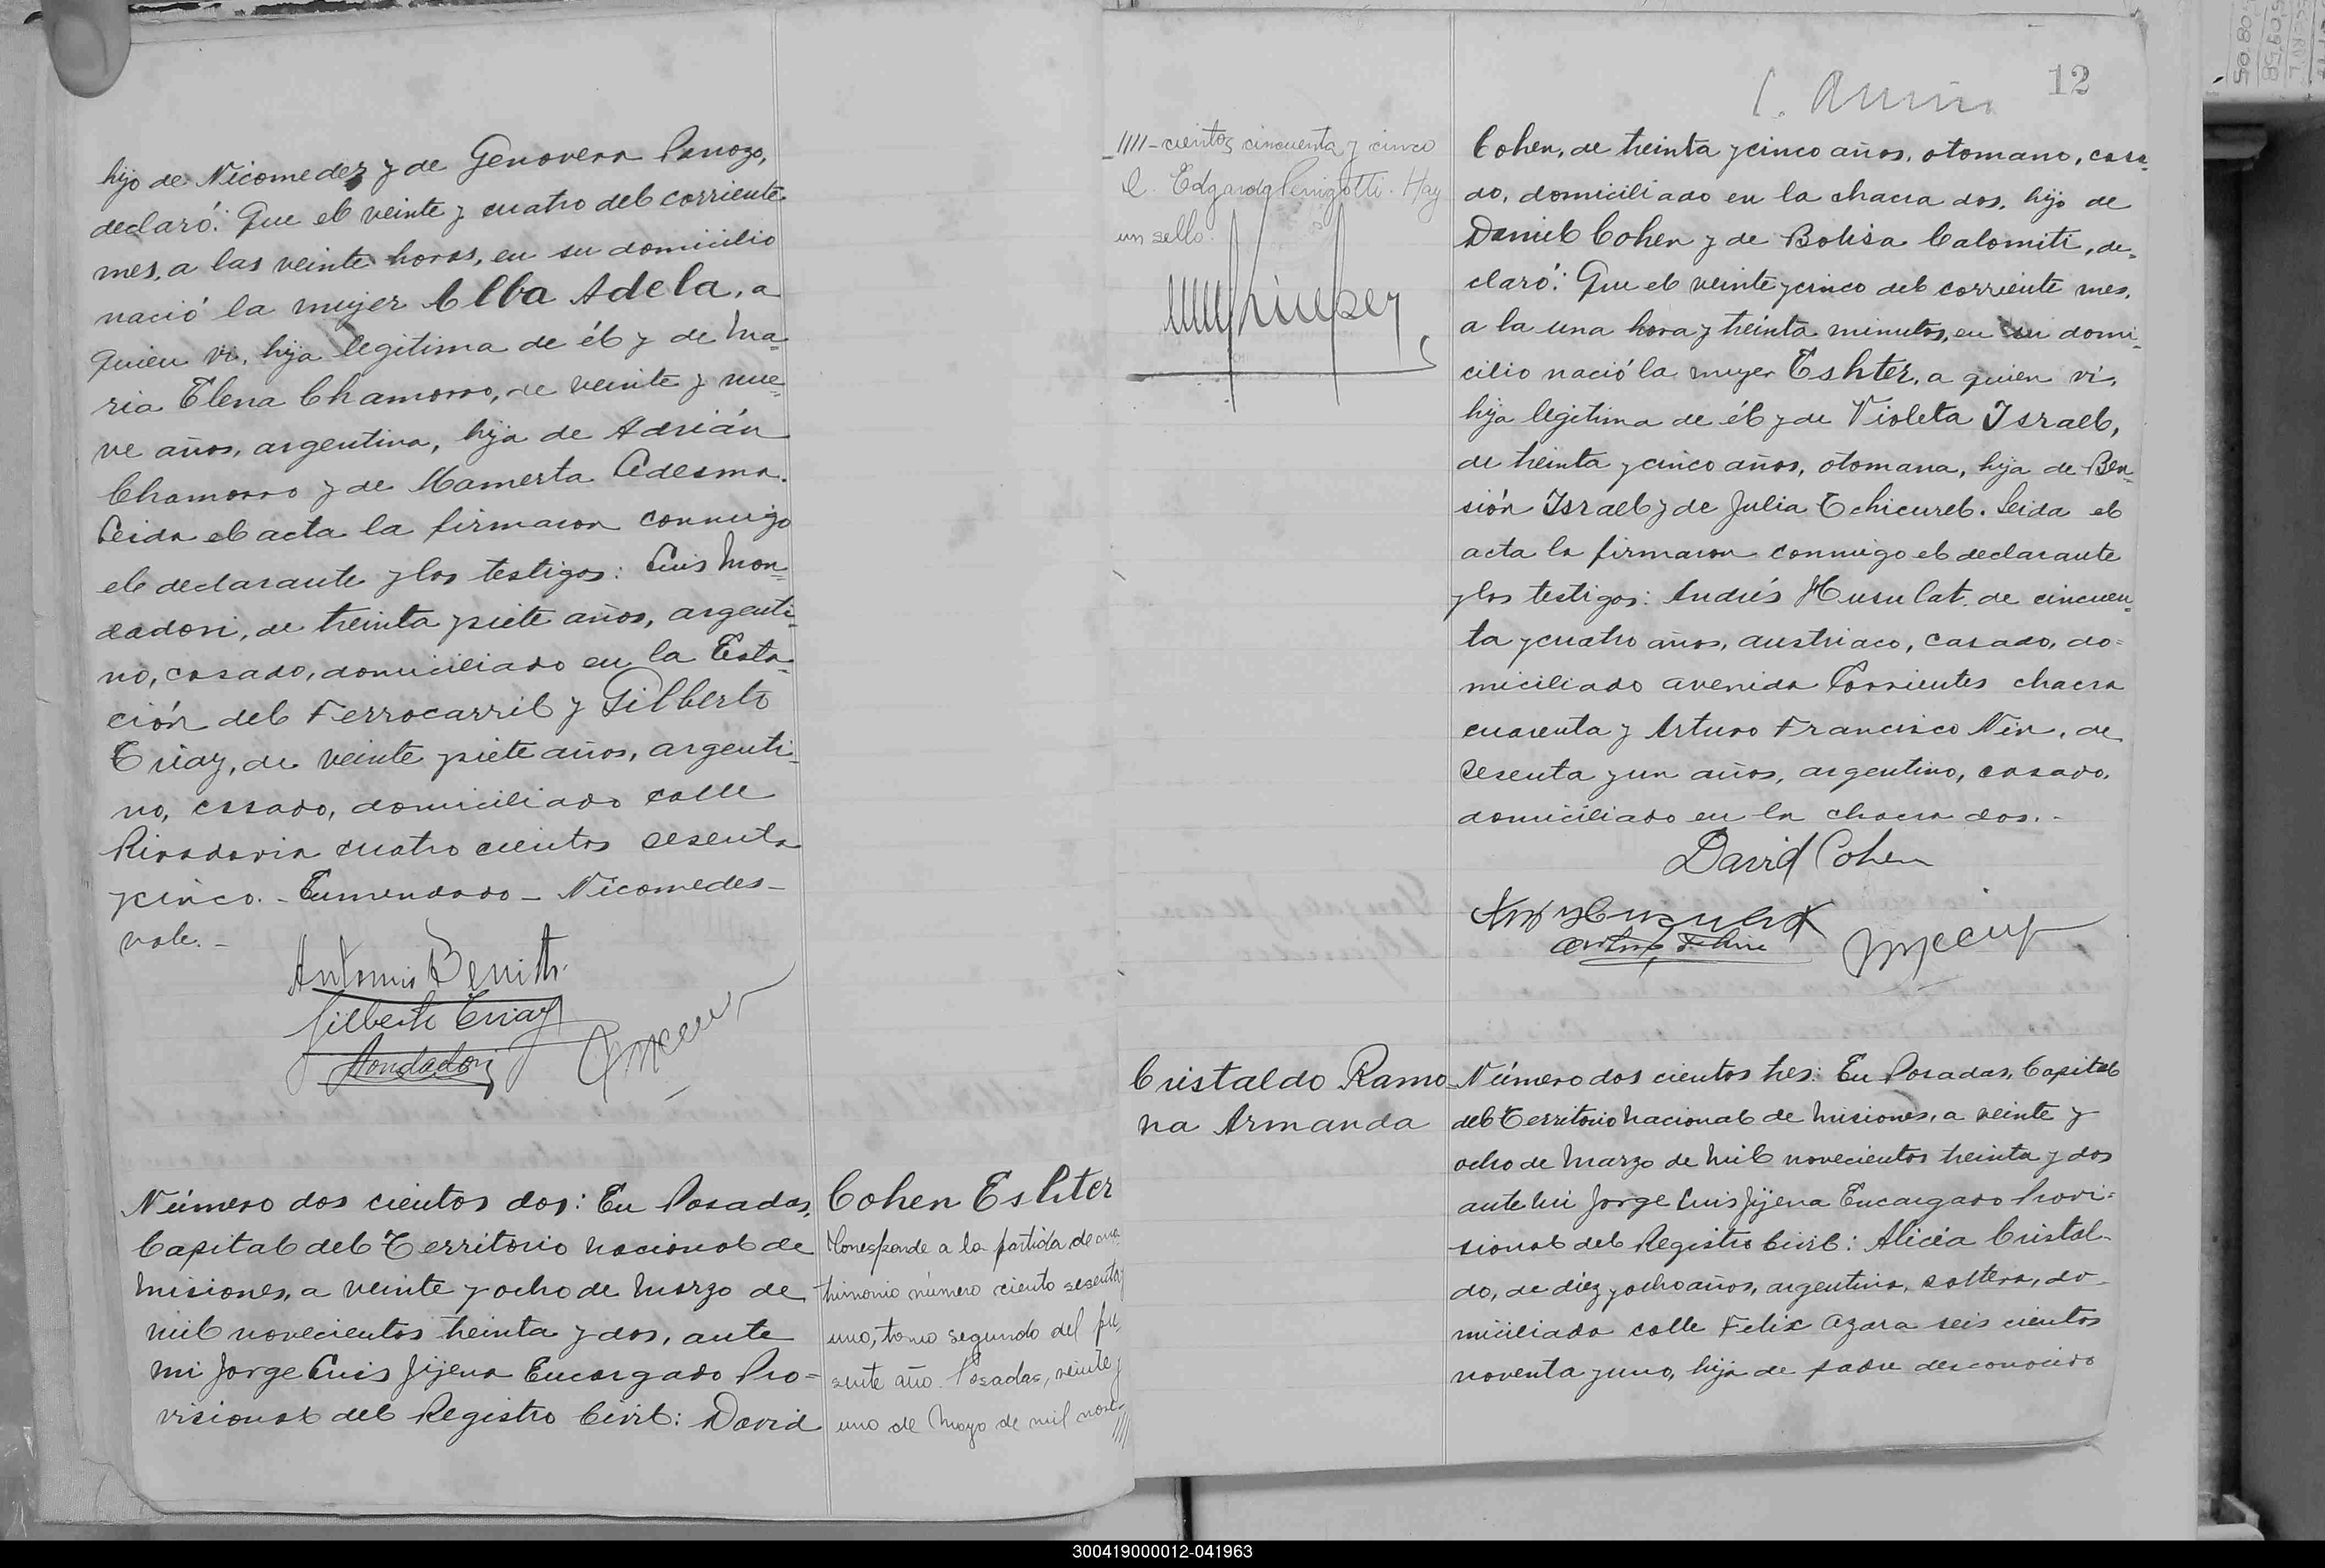 hijo de Nicomedes y de Genoveva Panozo,
declaró: Que el veinte y cuatro del corriente
mes, a las veinte horas, en su domicilio
nació la mujer Alba Adela, a
quien vi, hija legitima de él y de Ma-
ria Elena Chamorro, de veinte y nue-
ve años, argentina, hija de Adrián
Chamorro y de Mamerta Ledesma.
Leida el acta la firmaron conmigo
el declarante y los testigos: Luis Mon-
dadori, de treinta y siete años, argenti-
no, casado, domiciliado en la Esta-
ción del Ferrocarril y Gilberto
Triay, de veinte y siete años, argenti-
no, casado, domiciliado calle
Rivadavia cuatro cientos sesenta
y cinco. - Enmendado - Nicomedes -
vale. -
Antonio Benith
Gilberto Triay
Mondadori
Número dos cientos dos: En Posadas,
Capital del Territorio Nacional de
Misiones, a veinte y ocho de Marzo de
mil novecientos treinta y dos, ante
mi Jorge Luis Jijena Encargado Pro-
visional del Registro Civil: David
Cohen Eshter
Corresponde a la partida de ma-
trimonio número ciento sesenta y
uno, tomo segundo del pre-
sente año. Posadas, veinte y
uno de Mayo de mil nove-
////
12
////-cientos cincuenta y cinco
Edgardo Penigotti. Hay
un sello.
Cohen, de treinta y cinco años, otomano, casa-
do, domiciliado en la chacra dos, hijo de
Daniel Cohen y de Bolisa Calomiti, de-
claró: Que el veinte y cinco del corriente mes,
a la una hora y treinta minutos, en su domi-
cilio nació la mujer Eshter, a quien vi,
hija legitima de él y de Violeta Israel,
de treinta y cinco años, otomana, hija de Ben-
sión Israel y de Julia Tchicurel. Leida el
acta la firmaron conmigo el declarante
y los testigos: Andrés Husulat, de cincuen-
ta y cuatro años, austriaco, casado, do-
miciliado avenida Corrientes chacra
cuarenta y Arturo Francisco Nin, de
sesenta y un años, argentino, casado,
domiciliado en la chacra dos. -
David Cohen
Cristaldo Ramo-
na Armanda
Número dos cientos tres: En Posadas, Capital
del Territorio Nacional de Misiones, a veinte y
ocho de Marzo de mil novecientos treinta y dos
ante mi Jorge Luis Jijena Encargado Provi-
sional del Registro Civil: Alicia Cristal-
do, de diez y ocho años, argentina, soltera, do-
miciliada calle Felix Azara seis cientos
noventa y uno, hija de padre desconocido
300419000012-041963